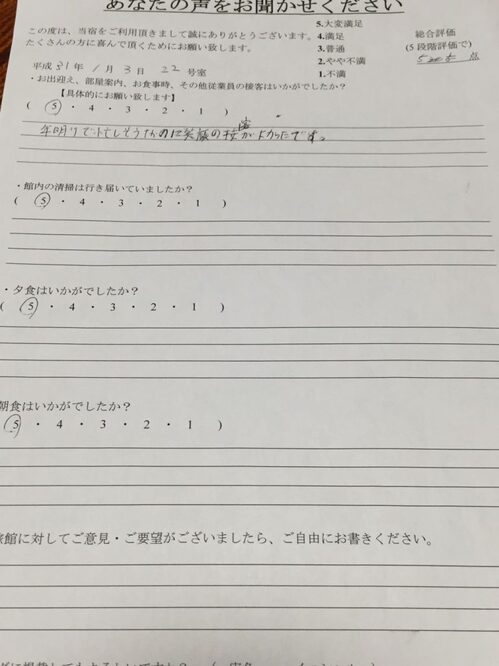 あなたの声をお聞かせください
この度は、当宿をご利用頂きまして誠にありがとうございます。
たくさんの方に喜んで頂くためにお願い致します。
5.大変満足
4.満足
3.普通
2.やや不満
1.不満
総合評価
(5段階評価で)
5 点
平成 31 年 1 月 3 日 22 号室
・お出迎え、部屋案内、お食事時、その他従業員の接客はいかがでしたか？
【具体的にお願い致します】
( 5 ・ 4 ・ 3 ・ 2 ・ 1 )
年明けで なのに笑顔の接客がよかったです。
・館内の清掃は行き届いていましたか？
( 5 ・ 4 ・ 3 ・ 2 ・ 1 )
・夕食はいかがでしたか？
( 5 ・ 4 ・ 3 ・ 2 ・ 1 )
朝食はいかがでしたか？
5 ・ 4 ・ 3 ・ 2 ・ 1 )
旅館に対してご意見・ご要望がございましたら、ご自由にお書きください。